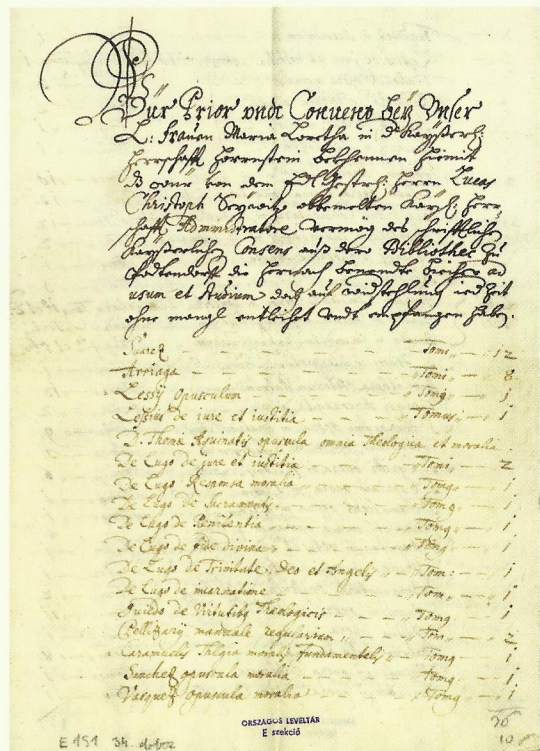 Wür Prior vndt Convent beÿ Vnser
L: Frauen Maria Loretha in d Kaÿßerl:
Herrschafft Horrnstein bekhennen hiemit
dz wür von dem Herrn Lucas
Christoph obbemelten Kaÿl: Herr-
schafft Administratore vermög des schrifftlichen
Kaÿserlichen Consens auß dero Bibliothec zu
die hernach benandte biecher ad
usum et studium doch auf iedzeit
ohne mangl entleihet vndt empfangen haben.
Suarez Tomi 12
Arriaga Tomi 8
Lessÿ opusculum Tomq 1
Lessius de iure et iustitia Tomus 1
D. Thomæ Aquinatis opuscula omnia Theologica et moralia
De Lugo de jure et iustitia Tomi 2
De Lugo Responsa moralia Tomq 1
De Lugo de Sacramentis Tomq 1
De Lugo de Penitentia Tomq 1
De Lugo de fide divina Tomq 1
De Lugo de Trinitate, Deo et Angelis Tom: 1
De Lugo de incarnatione Tom 1
de Virtutibus Theologicis Tomq 1
Pellizarÿ manuale regularium Tom 2
Caramuelis Thlgia moralis fundamentalis Tomq 1
Sanchez opuscula moralia Tomq 1
Vasquez opuscula moralia Tomq 1
ORSZÁGOS LEVÉLTÁR
E szekció
E 151 34. doboz
10